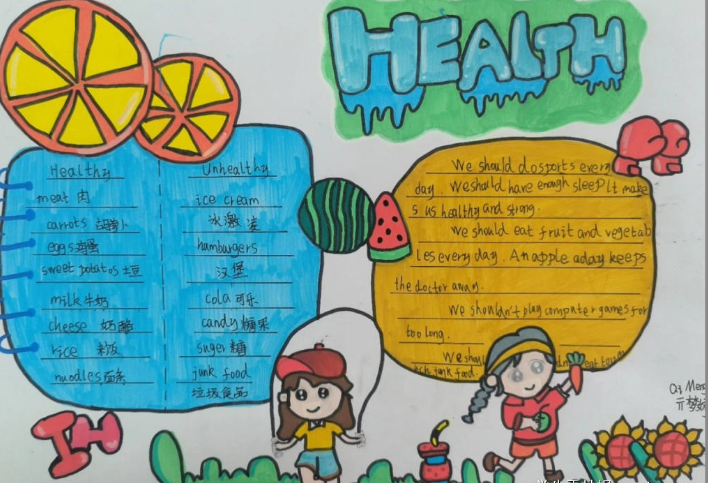 HEALTH
Healthy
meat 肉
carrots 胡萝卜
eggs 鸡蛋
sweet potatos 土豆
milk 牛奶
cheese 奶酪
rice 米饭
nuodles 面条
Unhealthy
ice cream
冰激凌
hamburgers
汉堡
cola 可乐
candy 糖果
suger 糖
junk food
垃圾食品
We should do sports every
day. We should have enough sleep It make
s us healthy and strong.
We should eat fruit and vegetab
les every day. An apple a day keeps
the doctor away.
We shouldn't play computer games for
too long.
We shou
eat too
ch junk food.
Qi Meng
亓梦